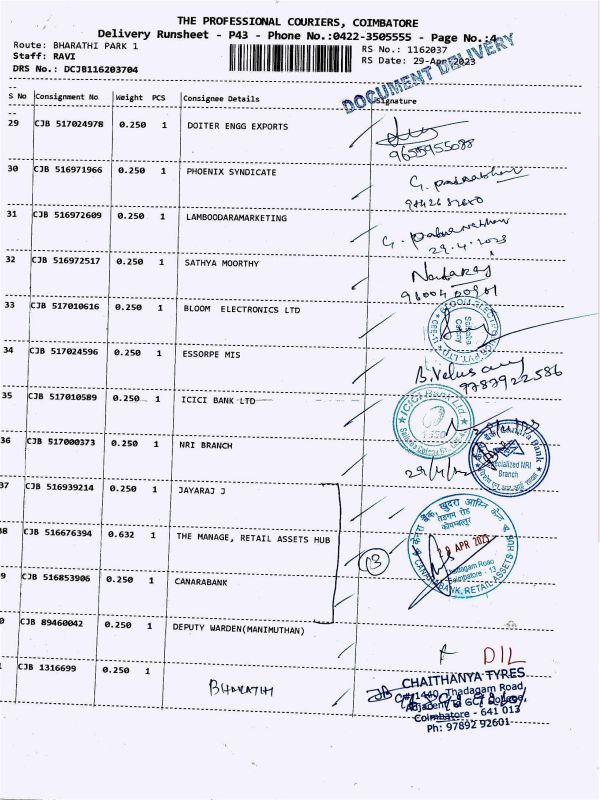 THE PROFESSIONAL COURIERS, COIMBATORE
Delivery Runsheet - P43 - Phone No.:0422-3505555 - Page No.:4
Route: BHARATHI PARK 1
RS No.: 1162037
Staff: RAVI
RS Date: 29-Apr-2023
DRS No.: DCJB116203704
DOCUMENT DELIVERY
S No Consignment No. Weight PCS Consignee Details Signature
29 CJB 517024978 0.250 1 DOITER ENGG EXPORTS
9655955088
30 CJB 516971966 0.250 1 PHOENIX SYNDICATE
31 CJB 516972609 0.250 1 LAMBOODARAMARKETING
29.4.2023
32 CJB 516972517 0.250 1 SATHYA MOORTHY
Nataraj
33 CJB 517010616 0.250 1 BLOOM ELECTRONICS LTD
Saibaba
Colony
34 CJB 517024596 0.250 1 ESSORPE MIS
B. Velusamy
9787922586
35 CJB 517010589 0.250 1 ICICI BANK LTD
ICICI Bank Ltd
36 CJB 517000373 0.250 1 NRI BRANCH
Canara Bank
Specialized NRI
Branch
37 CJB 516939214 0.250 1 JAYARAJ J
38 CJB 516676394 0.632 1 THE MANAGE, RETAIL ASSETS HUB
केनरा बैंक, खुदरा आस्ति केन्द्र
तडागम रोड
कोयम्बत्तूर
APR 2023
Thadagam Road
Coimbatore - 13
CANARA BANK, RETAIL ASSETS HUB
(3)
9 CJB 516853906 0.250 1 CANARABANK
0 CJB 89460042 0.250 1 DEPUTY WARDEN(MANIMUTHAN)
D/L
CJB 1316699 0.250 1 BHARATHI
CHAITHANYA TYRES
#1440, Thadagam Road,
Adjacent to GCT College,
Coimbatore - 641 013
Ph: 97892 92601